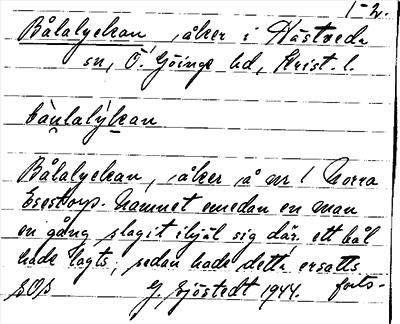 1-2.
Bålalyckan, åker i Hästveda
sn, Ö. Göinge hd, Krist. l.
bàu̯lalỳkan
Bålalyckan, åker å nr 1 Norra
Esestorp. Namnet emedan en man
en gång slagit ihjäl sig där. ett bål
hade lagts, sedan hade detta ersatts
G. Sjöstedt 1944. forts-